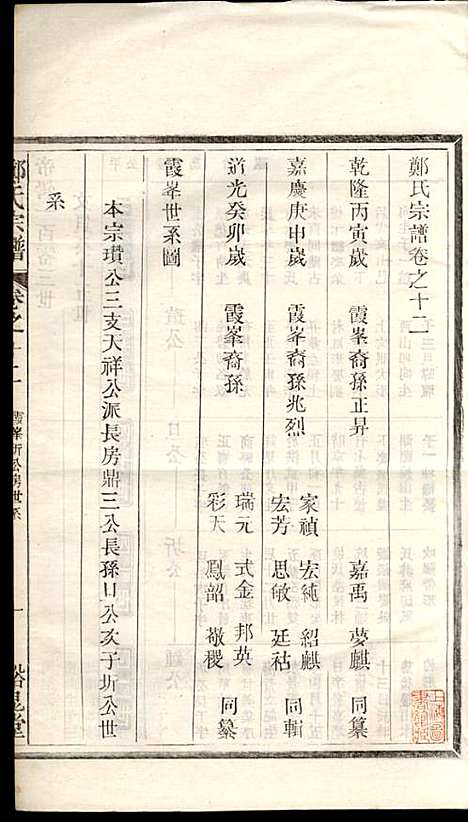 鄭氏宗譜卷之十二
乾隆丙寅歲 霞峯裔孫正昇 嘉禹 夢麒 同纂
嘉慶庚申歲 霞峯裔孫兆烈 家禎 宏純 紹麒
宏芳 思敏 廷祜 同輯
道光癸卯歲 霞峯裔孫 瑞元 式金 邦英
彩天 鳳韶 敬稷 同纂
霞峯世系圖
本宗瓚公三支天祥公派長房鼎三公長孫口公亥子圻公世
系
鄭氏宗譜 卷之十二 霞峯圻公房世系 一 裕昆堂